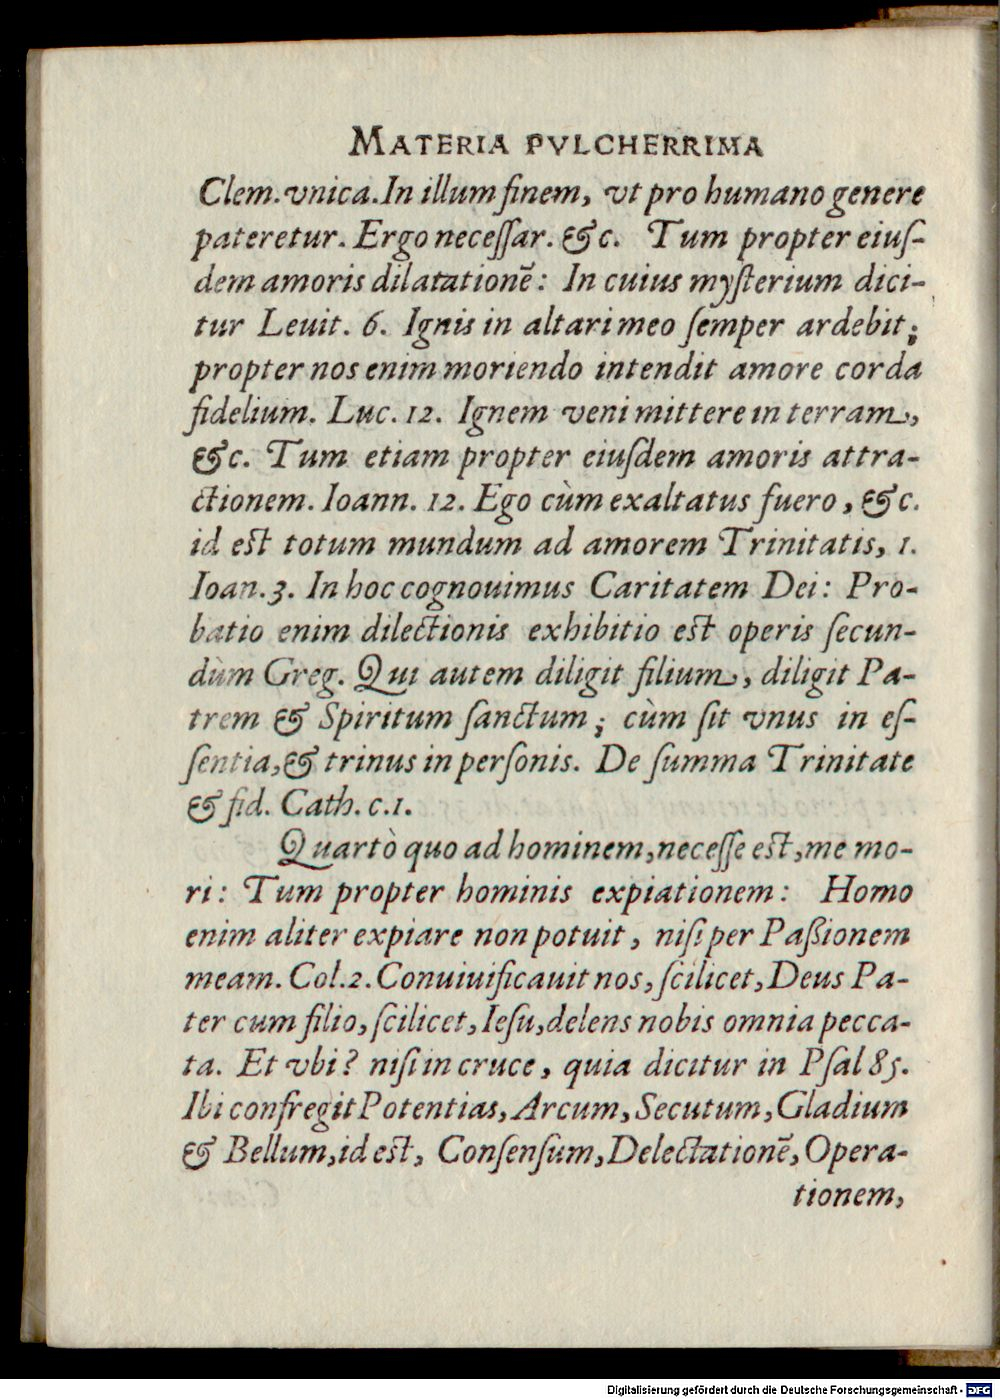 MATERIA PVLCHERRIMA
Clem. vnica. In illum finem, vt pro humano genere
pateretur. Ergo neceſſar. &c. Tum propter eiuſ-
dem amoris dilatationẽ: In cuius myſterium dici-
tur Leuit. 6. Ignis in altari meo ſemper ardebit;
propter nos enim moriendo intendit amore corda
fidelium. Luc. 12. Ignem veni mittere in terram,
&c. Tum etiam propter eiuſdem amoris attra-
ctionem. Ioann. 12. Ego cùm exaltatus fuero, &c.
id eſt totum mundum ad amorem Trinitatis, 1.
Ioan. 3. In hoc cognouimus Caritatem Dei: Pro-
batio enim dilectionis exhibitio eſt operis ſecun-
dùm Greg. Qui autem diligit filium, diligit Pa-
trem & Spiritum ſanctum; cùm ſit vnus in eſ-
ſentia, & trinus in perſonis. De ſumma Trinitate
& fid. Cath. c.1.
Quartò quo ad hominem, neceſſe eſt, me mo-
ri: Tum propter hominis expiationem: Homo
enim aliter expiare non potuit, niſi per Paßionem
meam. Col. 2. Conuiuificauit nos, ſcilicet, Deus Pa-
ter cum filio, ſcilicet, Ieſu, delens nobis omnia pecca-
ta. Et vbi? niſi in cruce, quia dicitur in Pſal 85.
Ibi confregit Potentias, Arcum, Secutum, Gladium
& Bellum, id eſt, Conſenſum, Delectationẽ, Opera-
tionem,
Digitalisierung gefördert durch die Deutsche Forschungsgemeinschaft - DFG